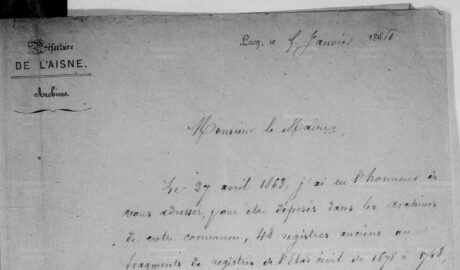 Préfecture
DE L'AISNE.
Archives.
Laon, le 5 Janvier 1864
Monsieur le Maire,
Le 27 avril 1863, j'ai eu l'honneur de
vous adresser, pour être déposés dans les archives
de votre commune, 48 registres anciens ou
fragments de registres de l'Etat civil de 1678 à 1748,